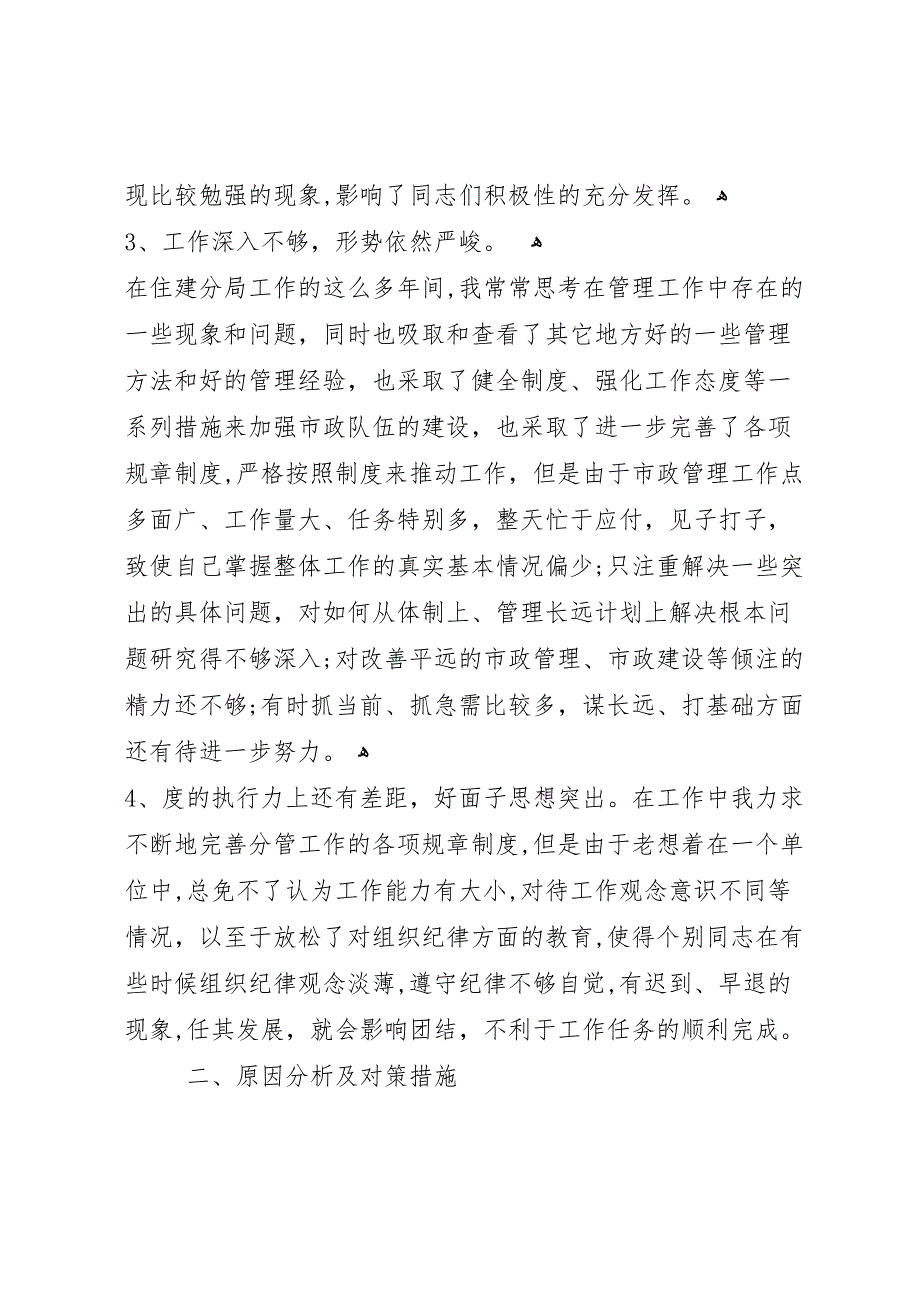 现比较勉强的现象,影响了同志们积极性的充分发挥。 ﻫ
3、工作深入不够，形势依然严峻。 ﻫ
在住建分局工作的这么多年间,我常常思考在管理工作中存在的
一些现象和问题，同时也吸取和查看了其它地方好的一些管理
方法和好的管理经验，也采取了健全制度、强化工作态度等一
系列措施来加强市政队伍的建设，也采取了进一步完善了各项
规章制度,严格按照制度来推动工作，但是由于市政管理工作点
多面广、工作量大、任务特别多，整天忙于应付，见子打子，
致使自己掌握整体工作的真实基本情况偏少;只注重解决一些突
出的具体问题，对如何从体制上、管理长远计划上解决根本问
题研究得不够深入;对改善平远的市政管理、市政建设等倾注的
精力还不够;有时抓当前、抓急需比较多，谋长远、打基础方面
还有待进一步努力。 ﻫ
4、度的执行力上还有差距，好面子思想突出。在工作中我力求
不断地完善分管工作的各项规章制度,但是由于老想着在一个单
位中,总免不了认为工作能力有大小,对待工作观念意识不同等
情况，以至于放松了对组织纪律方面的教育,使得个别同志在有
些时候组织纪律观念淡薄,遵守纪律不够自觉,有迟到、早退的
现象,任其发展，就会影响团结，不利于工作任务的顺利完成。
二、原因分析及对策措施